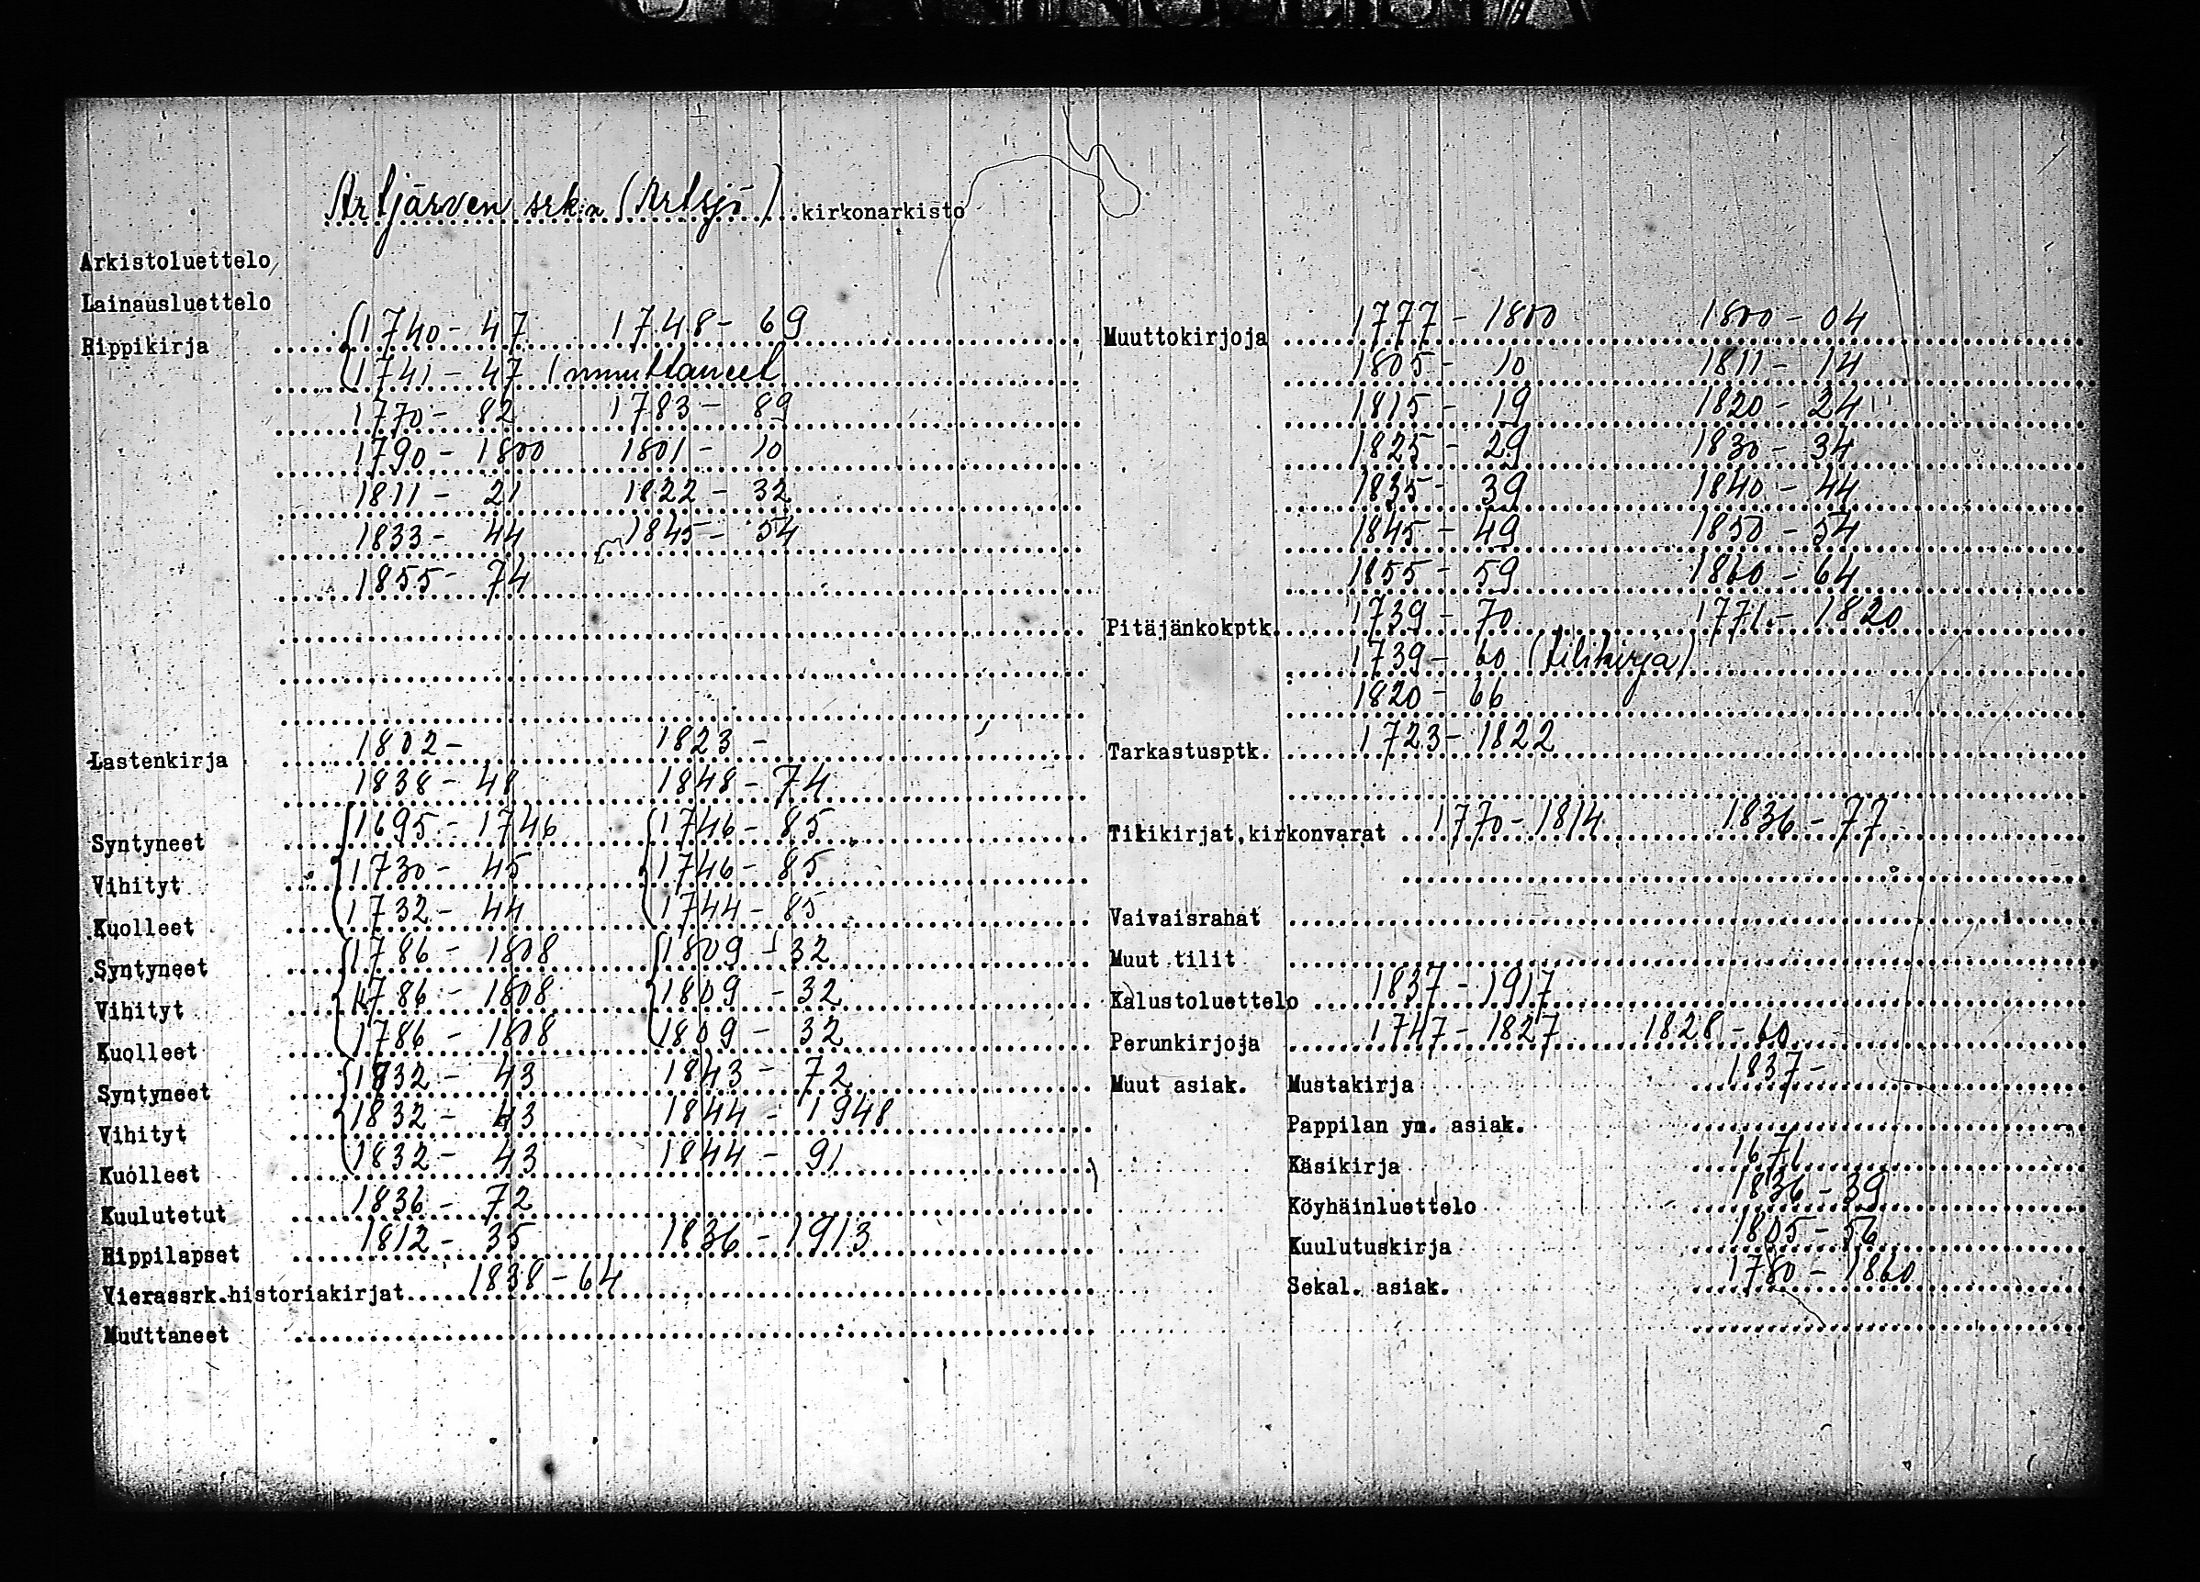 Artjärven srk:n (Artsjö) kirkonarkisto
Arkistoluettelo
Lainausluettelo
Rippikirja 1740 - 47 1748 - 69
1741 - 47 (muuttaneet
1770 - 82 1783 - 89
1790 - 1800 1801 - 10
1811 - 21 1822 - 32
1833 - 44 1845 - 54
1855 - 74
Lastenkirja 1802 - 1823 -
1838 - 48 1848 - 74
Syntyneet 1695 - 1746 1746 - 85
Vihityt 1730 - 45 1746 - 85
Kuolleet 1732 - 44 1744 - 85
Syntyneet 1786 - 1808 1809 - 32
Vihityt 1786 - 1808 1809 - 32
Kuolleet 1786 - 1808 1809 - 32
Syntyneet 1832 - 43 1843 - 72
Vihityt 1832 - 43 1844 - 1948
Kuolleet 1832 - 43 1844 - 91
Kuulutetut 1836 - 72
Rippilapset 1812 - 35 1836 - 1913
Vierassrk.historiakirjat 1838 - 64
Muuttaneet
Muuttokirjoja 1777 - 1800 1800 - 04
1805 - 10 1811 - 14
1815 - 19 1820 - 24
1825 - 29 1830 - 34
1835 - 39 1840 - 44
1845 - 49 1850 - 54
1855 - 59 1860 - 64
Pitäjänkokptk. 1739 - 70 1771 - 1820
1739 - 60 (tilikirja)
1820 - 66
Tarkastusptk. 1723 - 1822
Tilikirjat, kirkonvarat 1770 - 1814 1836 - 77
Vaivaisrahat
Muut tilit
Kalustoluettelo 1837 - 1917
Perunkirjoja 1747 - 1827 1828 - 60
Muut asiak. Mustakirja 1837 -
Pappilan ym. asiak.
Käsikirja 1671
Köyhäinluettelo 1836 - 39
Kuulutuskirja 1805 - 56
Sekal. asiak. 1780 - 1860